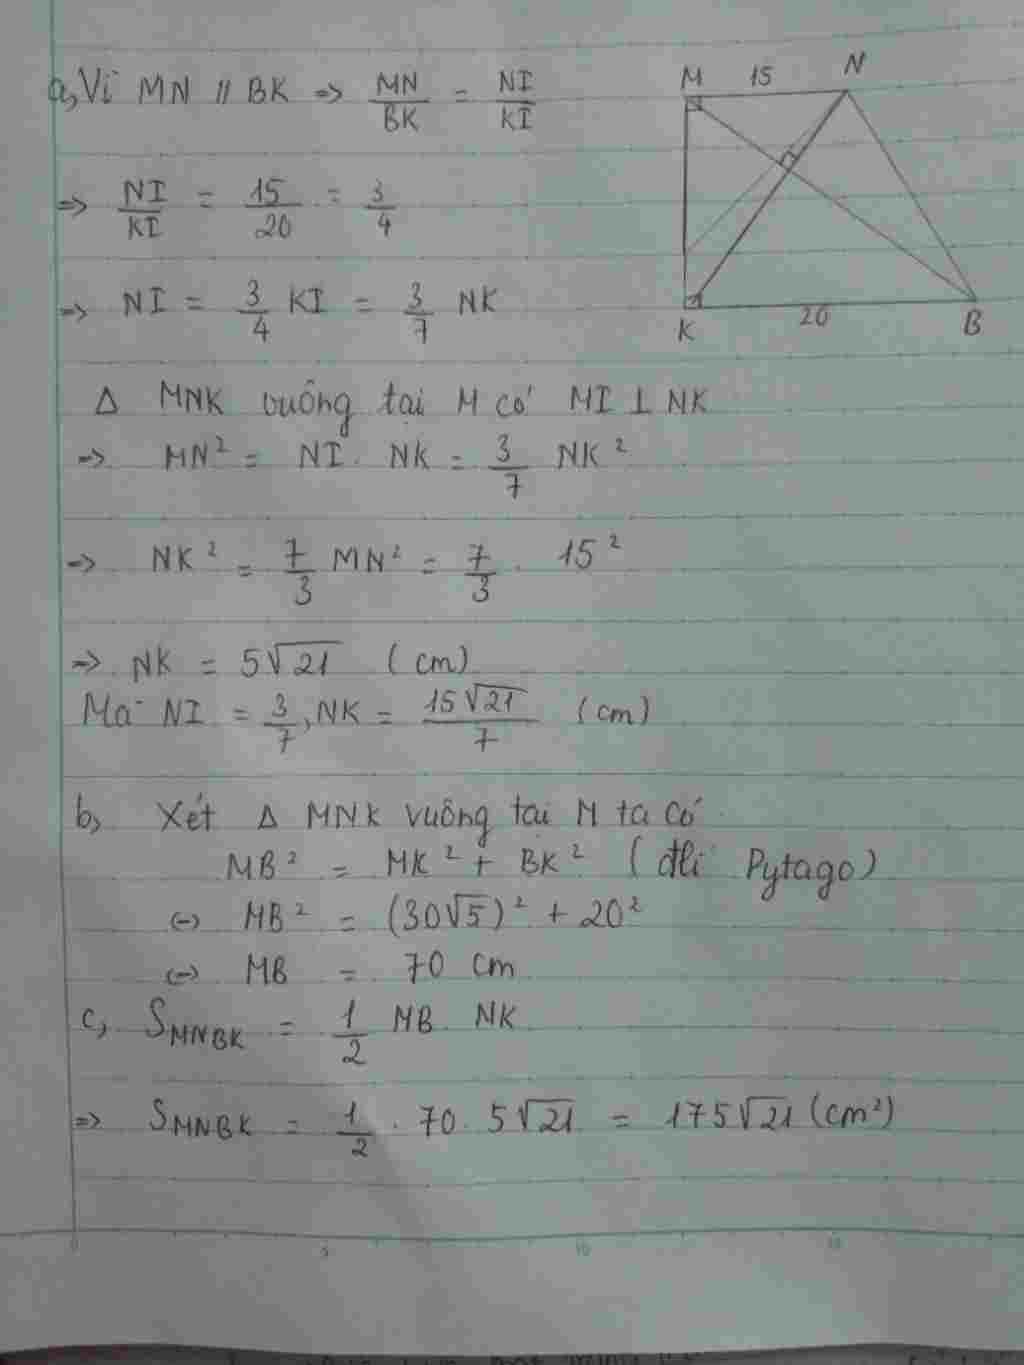 a, Vì MN // BK => MN/BK = NI/KI
M 15 N
=> NI/KI = 15/20 = 3/4
=> NI = 3/4 KI = 3/7 NK
K 20 B
Δ MNK vuông tại M có MI ⊥ NK
=> MN² = NI . NK = 3/7 NK²
=> NK² = 7/3 MN² = 7/3 . 15²
=> NK = 5√21 (cm)
Mà NI = 3/7 , NK = 15√21/7 (cm)
b, Xét Δ MNK vuông tại M ta có
MB² = MK² + BK² (đlí Pytago)
(=) MB² = (30√5)² + 20²
(=) MB = 70 cm
c, S MNBK = 1/2 MB NK
=> S MNBK = 1/2 . 70 . 5√21 = 175√21 (cm²)
0 5 10